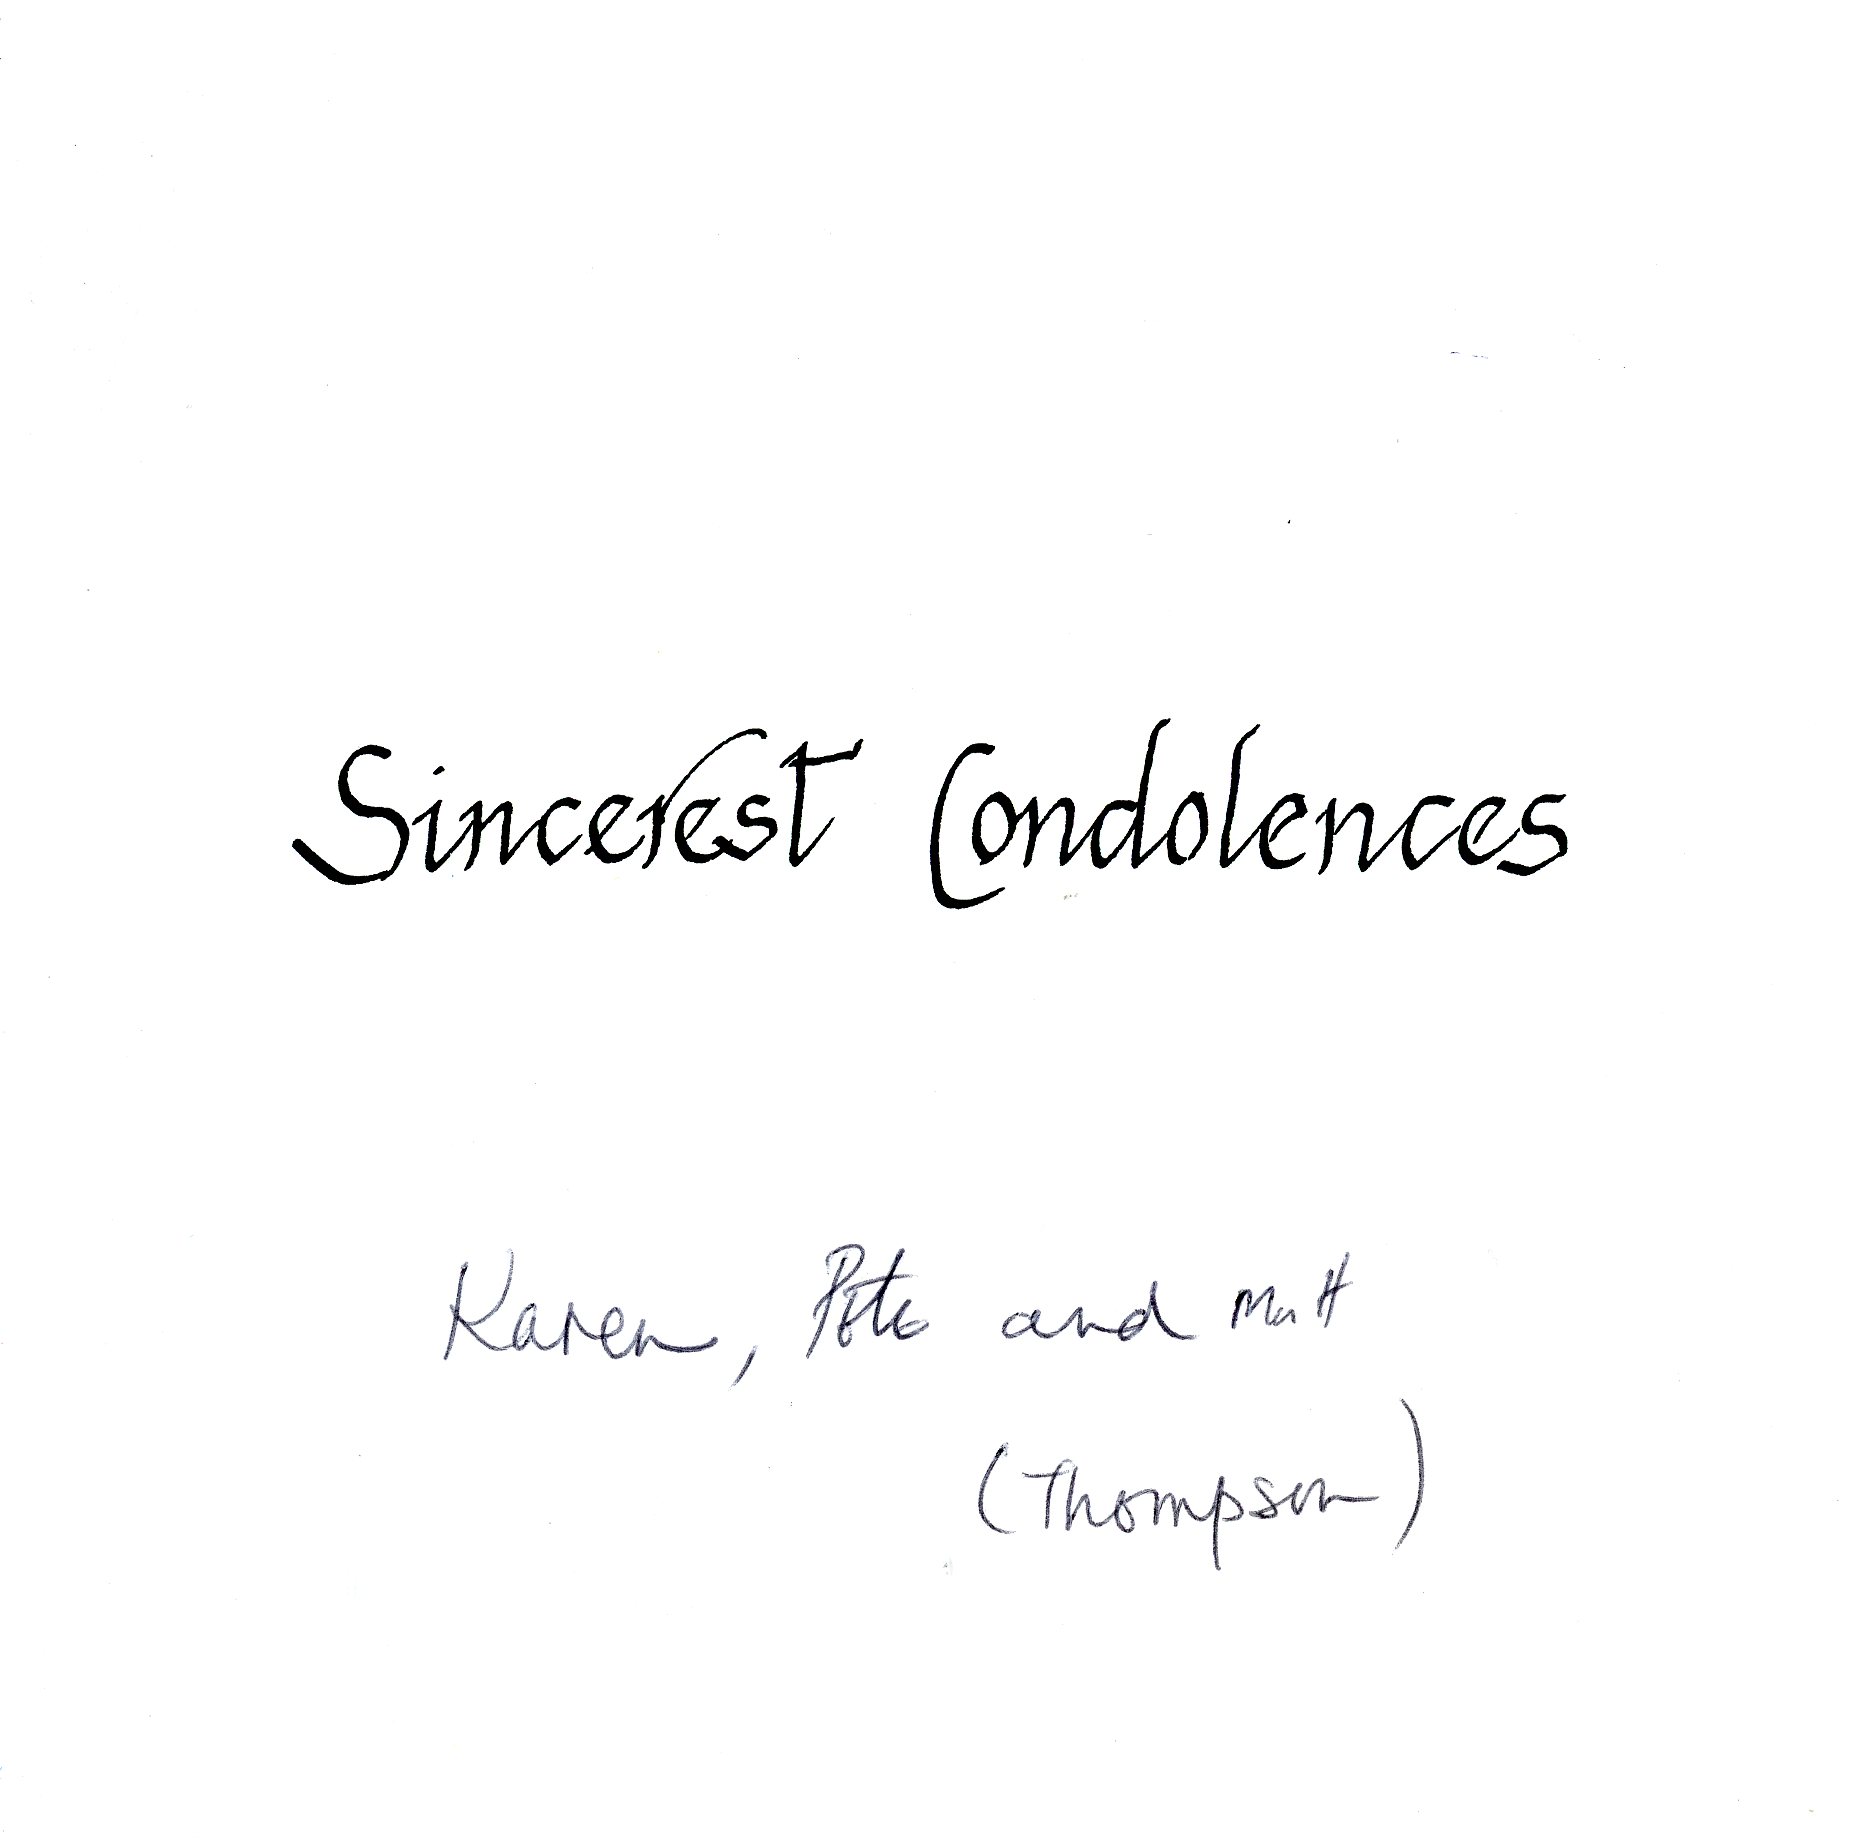 Sincerest Condolences
Karen, Pete and Matt
(Thompson)